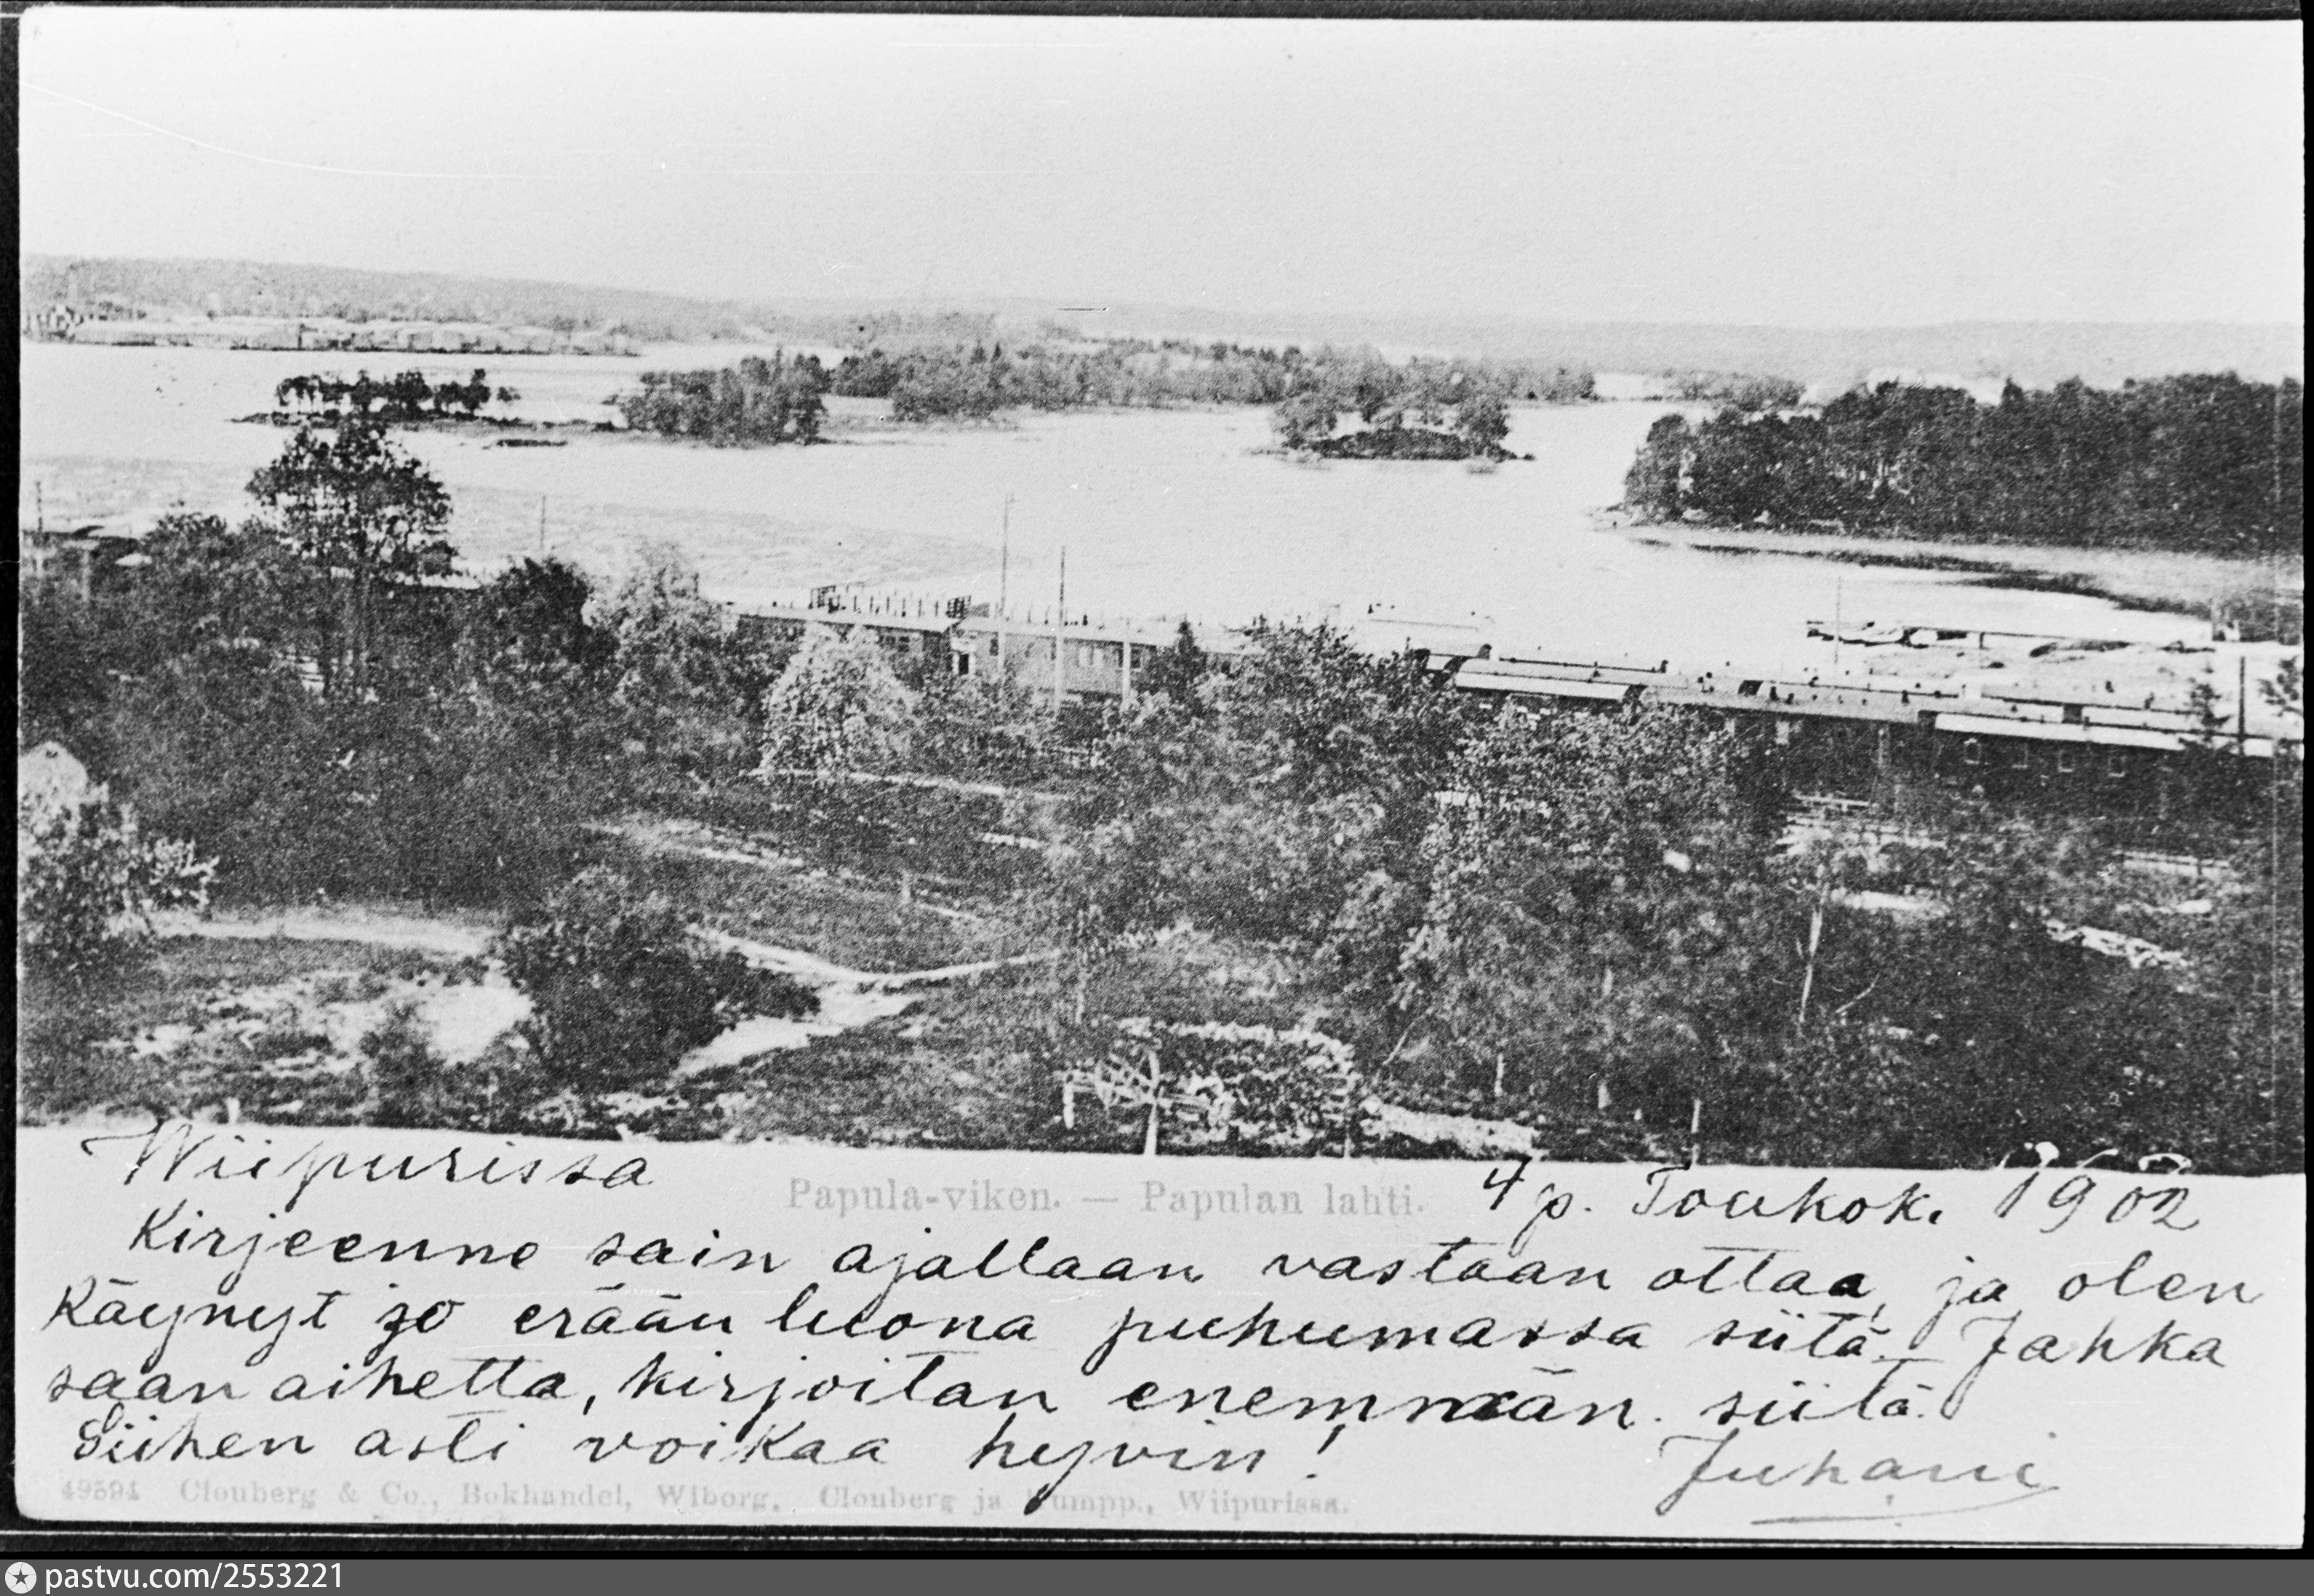 Wiipurissa 4 p. Toukok. 1902
Papula-viken. — Papulan lahti.
Kirjeenne sain ajallaan vastaan ottaa, ja olen
Käynyt jo erään luona puhumassa siitä. Jahka
saan aihetta, kirjoitan enemmän siitä.
Siihen asti voikaa hyvin!
Juhani
49594 Clouberg & Co., Bokhandel, Wiborg. Clouberg ja Kumpp., Wiipurissa.
pastvu.com/2553221